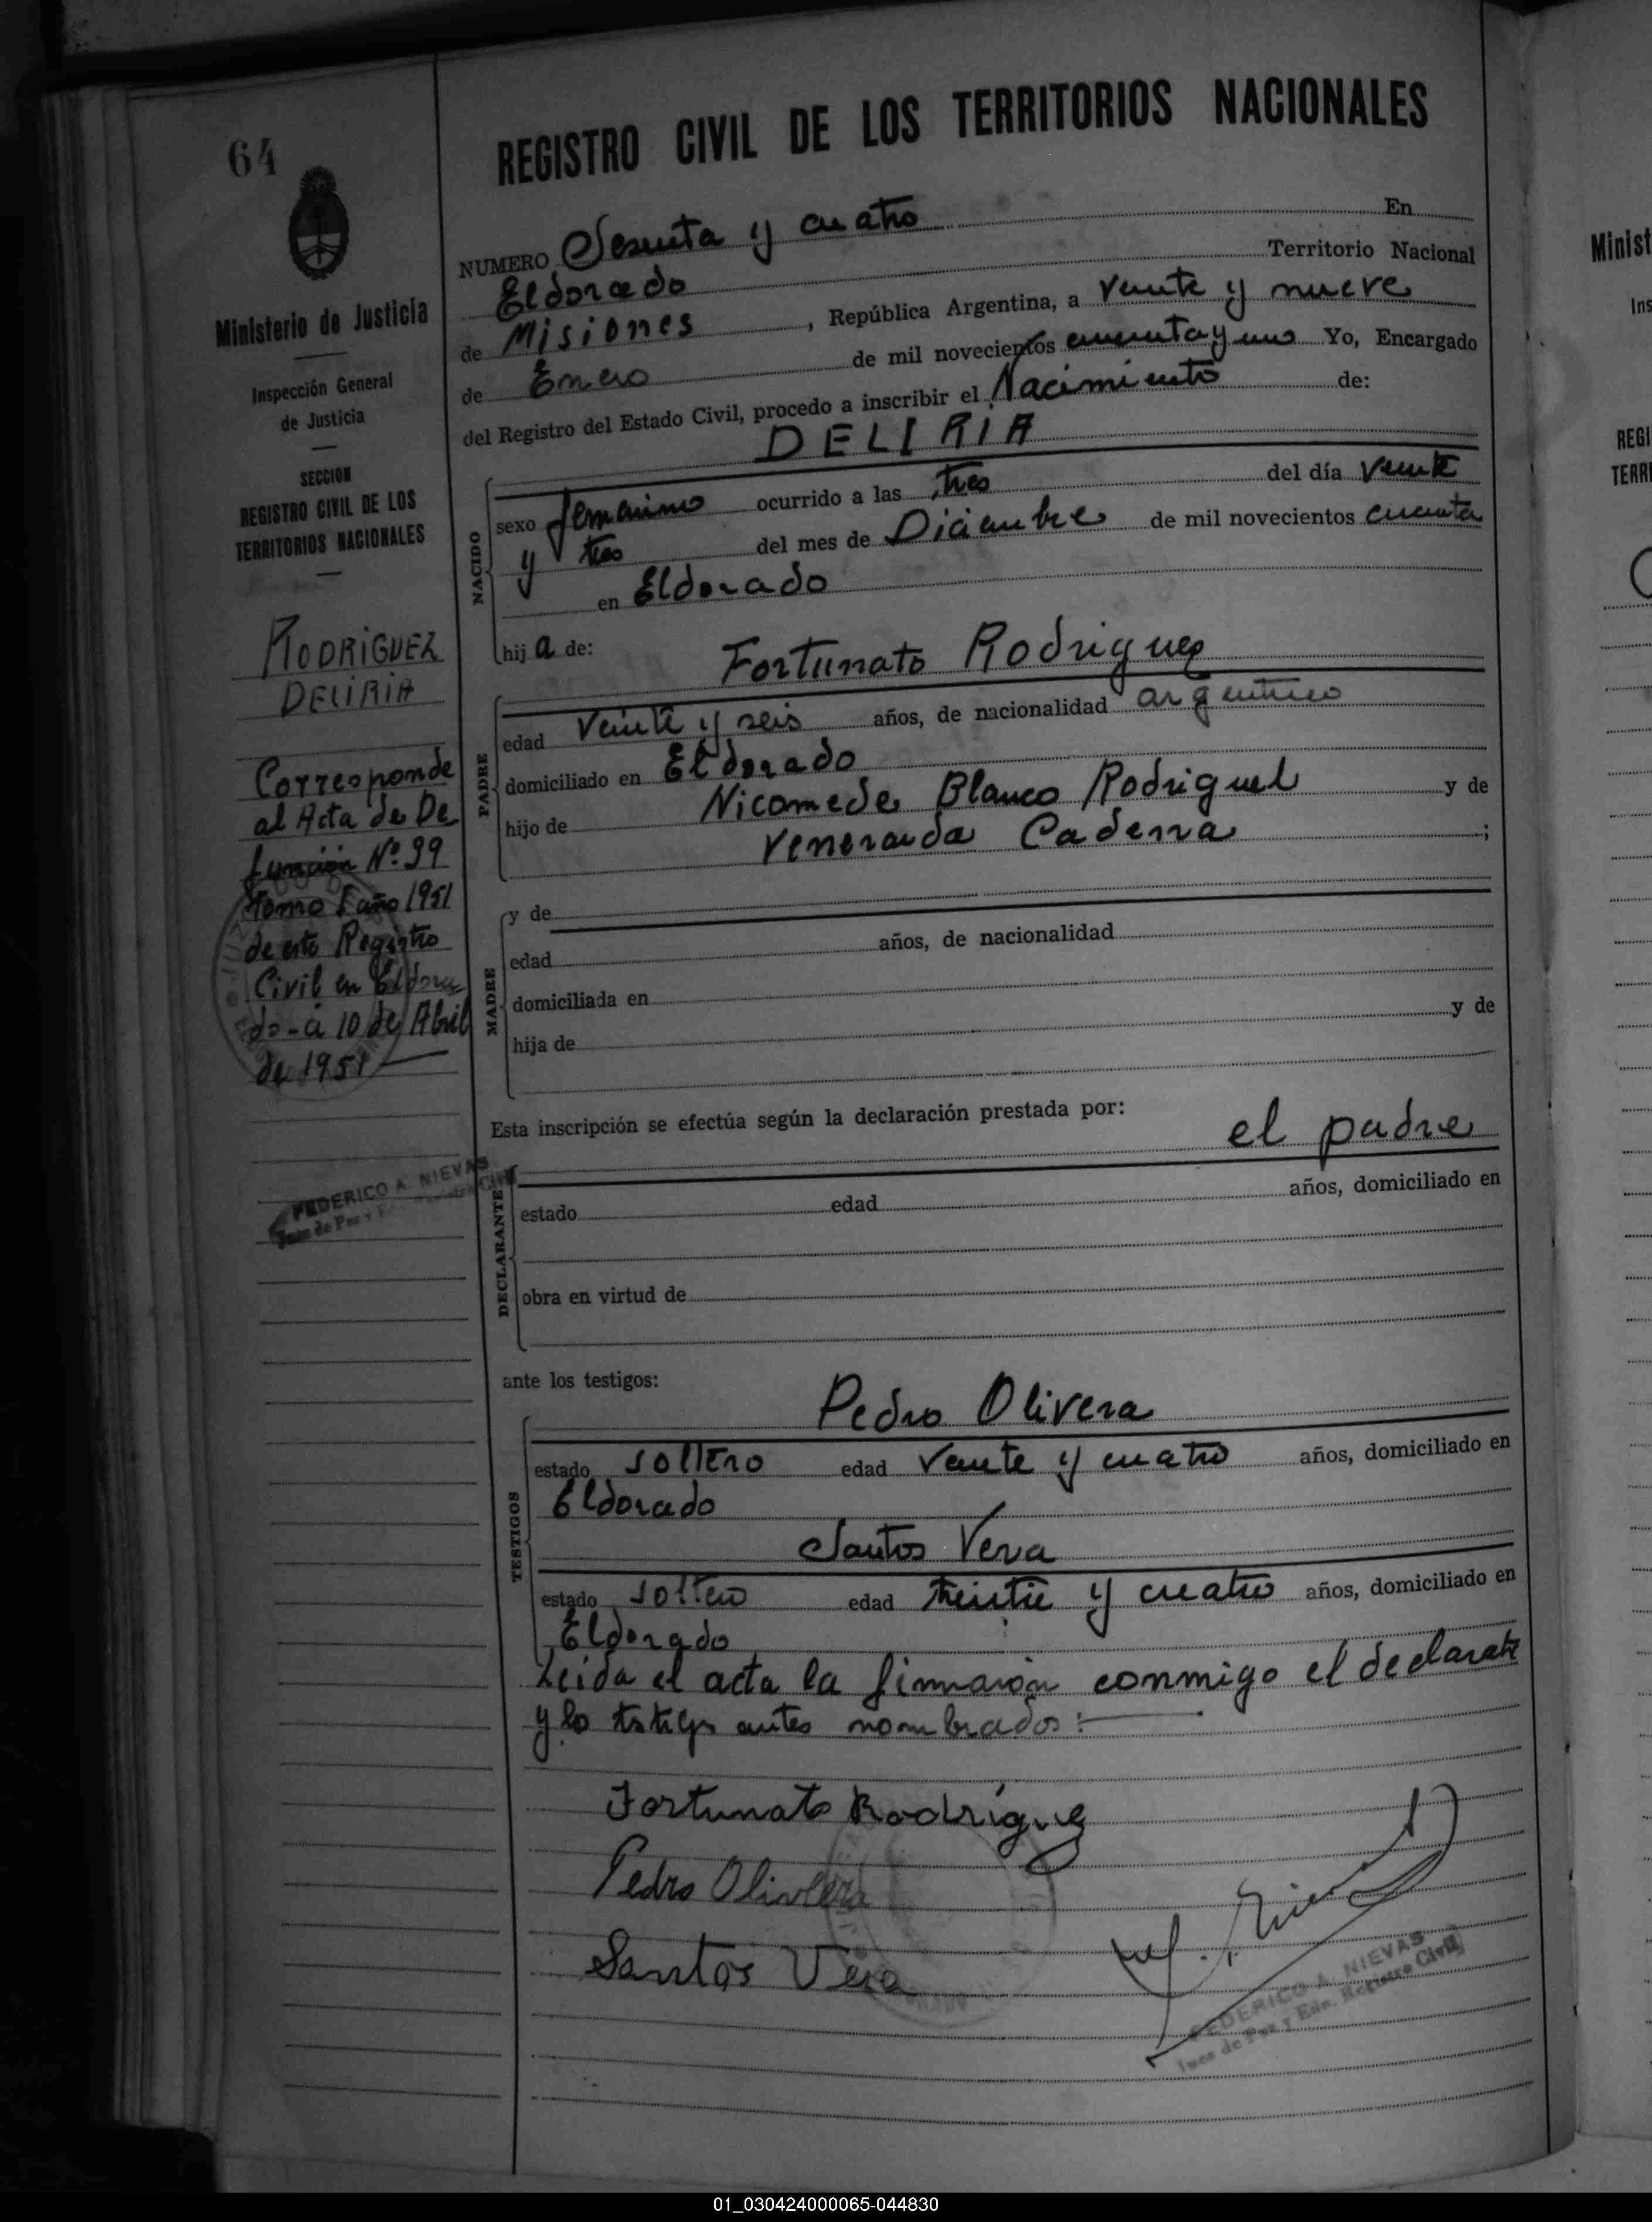 64
REGISTRO CIVIL DE LOS TERRITORIOS NACIONALES
Ministerio de Justicia
Inspección General
de Justicia
SECCION
REGISTRO CIVIL DE LOS
TERRITORIOS NACIONALES
RODRIGUEZ
DELIRIA
Corresponde
al Acta de De
función Nº 39
tomo I año 1951
de este Registro
Civil en Eldora
do - a 10 de Abril
de 1951
FEDERICO A. NIEVAS
NUMERO Sesenta y cuatro En
Eldorado Territorio Nacional
de Misiones, República Argentina, a veinte y nueve
de Enero de mil novecientos cincuenta y uno Yo, Encargado
del Registro del Estado Civil, procedo a inscribir el Nacimiento de:
DELIRIA
NACIDO
sexo femenino ocurrido a las tres del día veinte
y tres del mes de Diciembre de mil novecientos cincuenta
en Eldorado
hija de:
Fortunato Rodriguez
PADRE
edad veinte y seis años, de nacionalidad argentino
domiciliado en Eldorado
hijo de Nicomede Blanco Rodriguel y de
Veneranda Cadena;
MADRE
y de
edad años, de nacionalidad
domiciliada en
hija de y de
Esta inscripción se efectúa según la declaración prestada por:
el padre
DECLARANTE
estado edad años, domiciliado en
obra en virtud de
ante los testigos:
Pedro Olivera
TESTIGOS
estado soltero edad veinte y cuatro años, domiciliado en
Eldorado
Santos Vera
estado soltero edad treinta y cuatro años, domiciliado en
Eldorado
Leida el acta la firmaron conmigo el declarate
y lo testigs antes nombrados:
Fortunato Rodriguez
Pedro Olivera
Santos Vera
FEDERICO A. NIEVAS
Juez de Paz y Enc. Registro Civil
Minist
Ins
REGI
TERRI
01_030424000065-044830